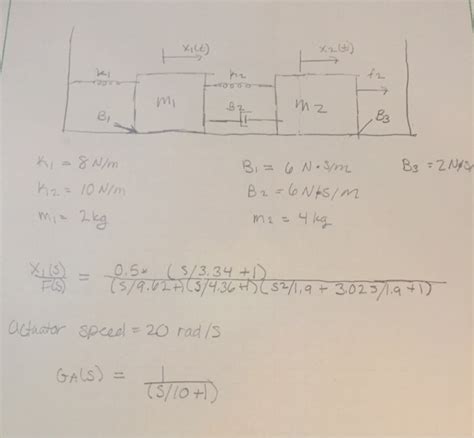 x₁(t) x₂(t)
k₁ k₂ f₂
m₁ B₂ m₂
B₁ B₃
K₁ = 8 N/m B₁ = 6 N·s/m B₃ = 2 N·s
K₂ = 10 N/m B₂ = 6 N·s/m
m₁ = 2 kg m₂ = 4 kg
X₁(s)/F(s) = 0.5* (s/3.34 + 1)
(s/9.62+1)(s/4.36+1)(s2/1.9 + 3.023/1.9 + 1)
actuator speed = 20 rad/s
GA(s) = 1
(s/10+1)